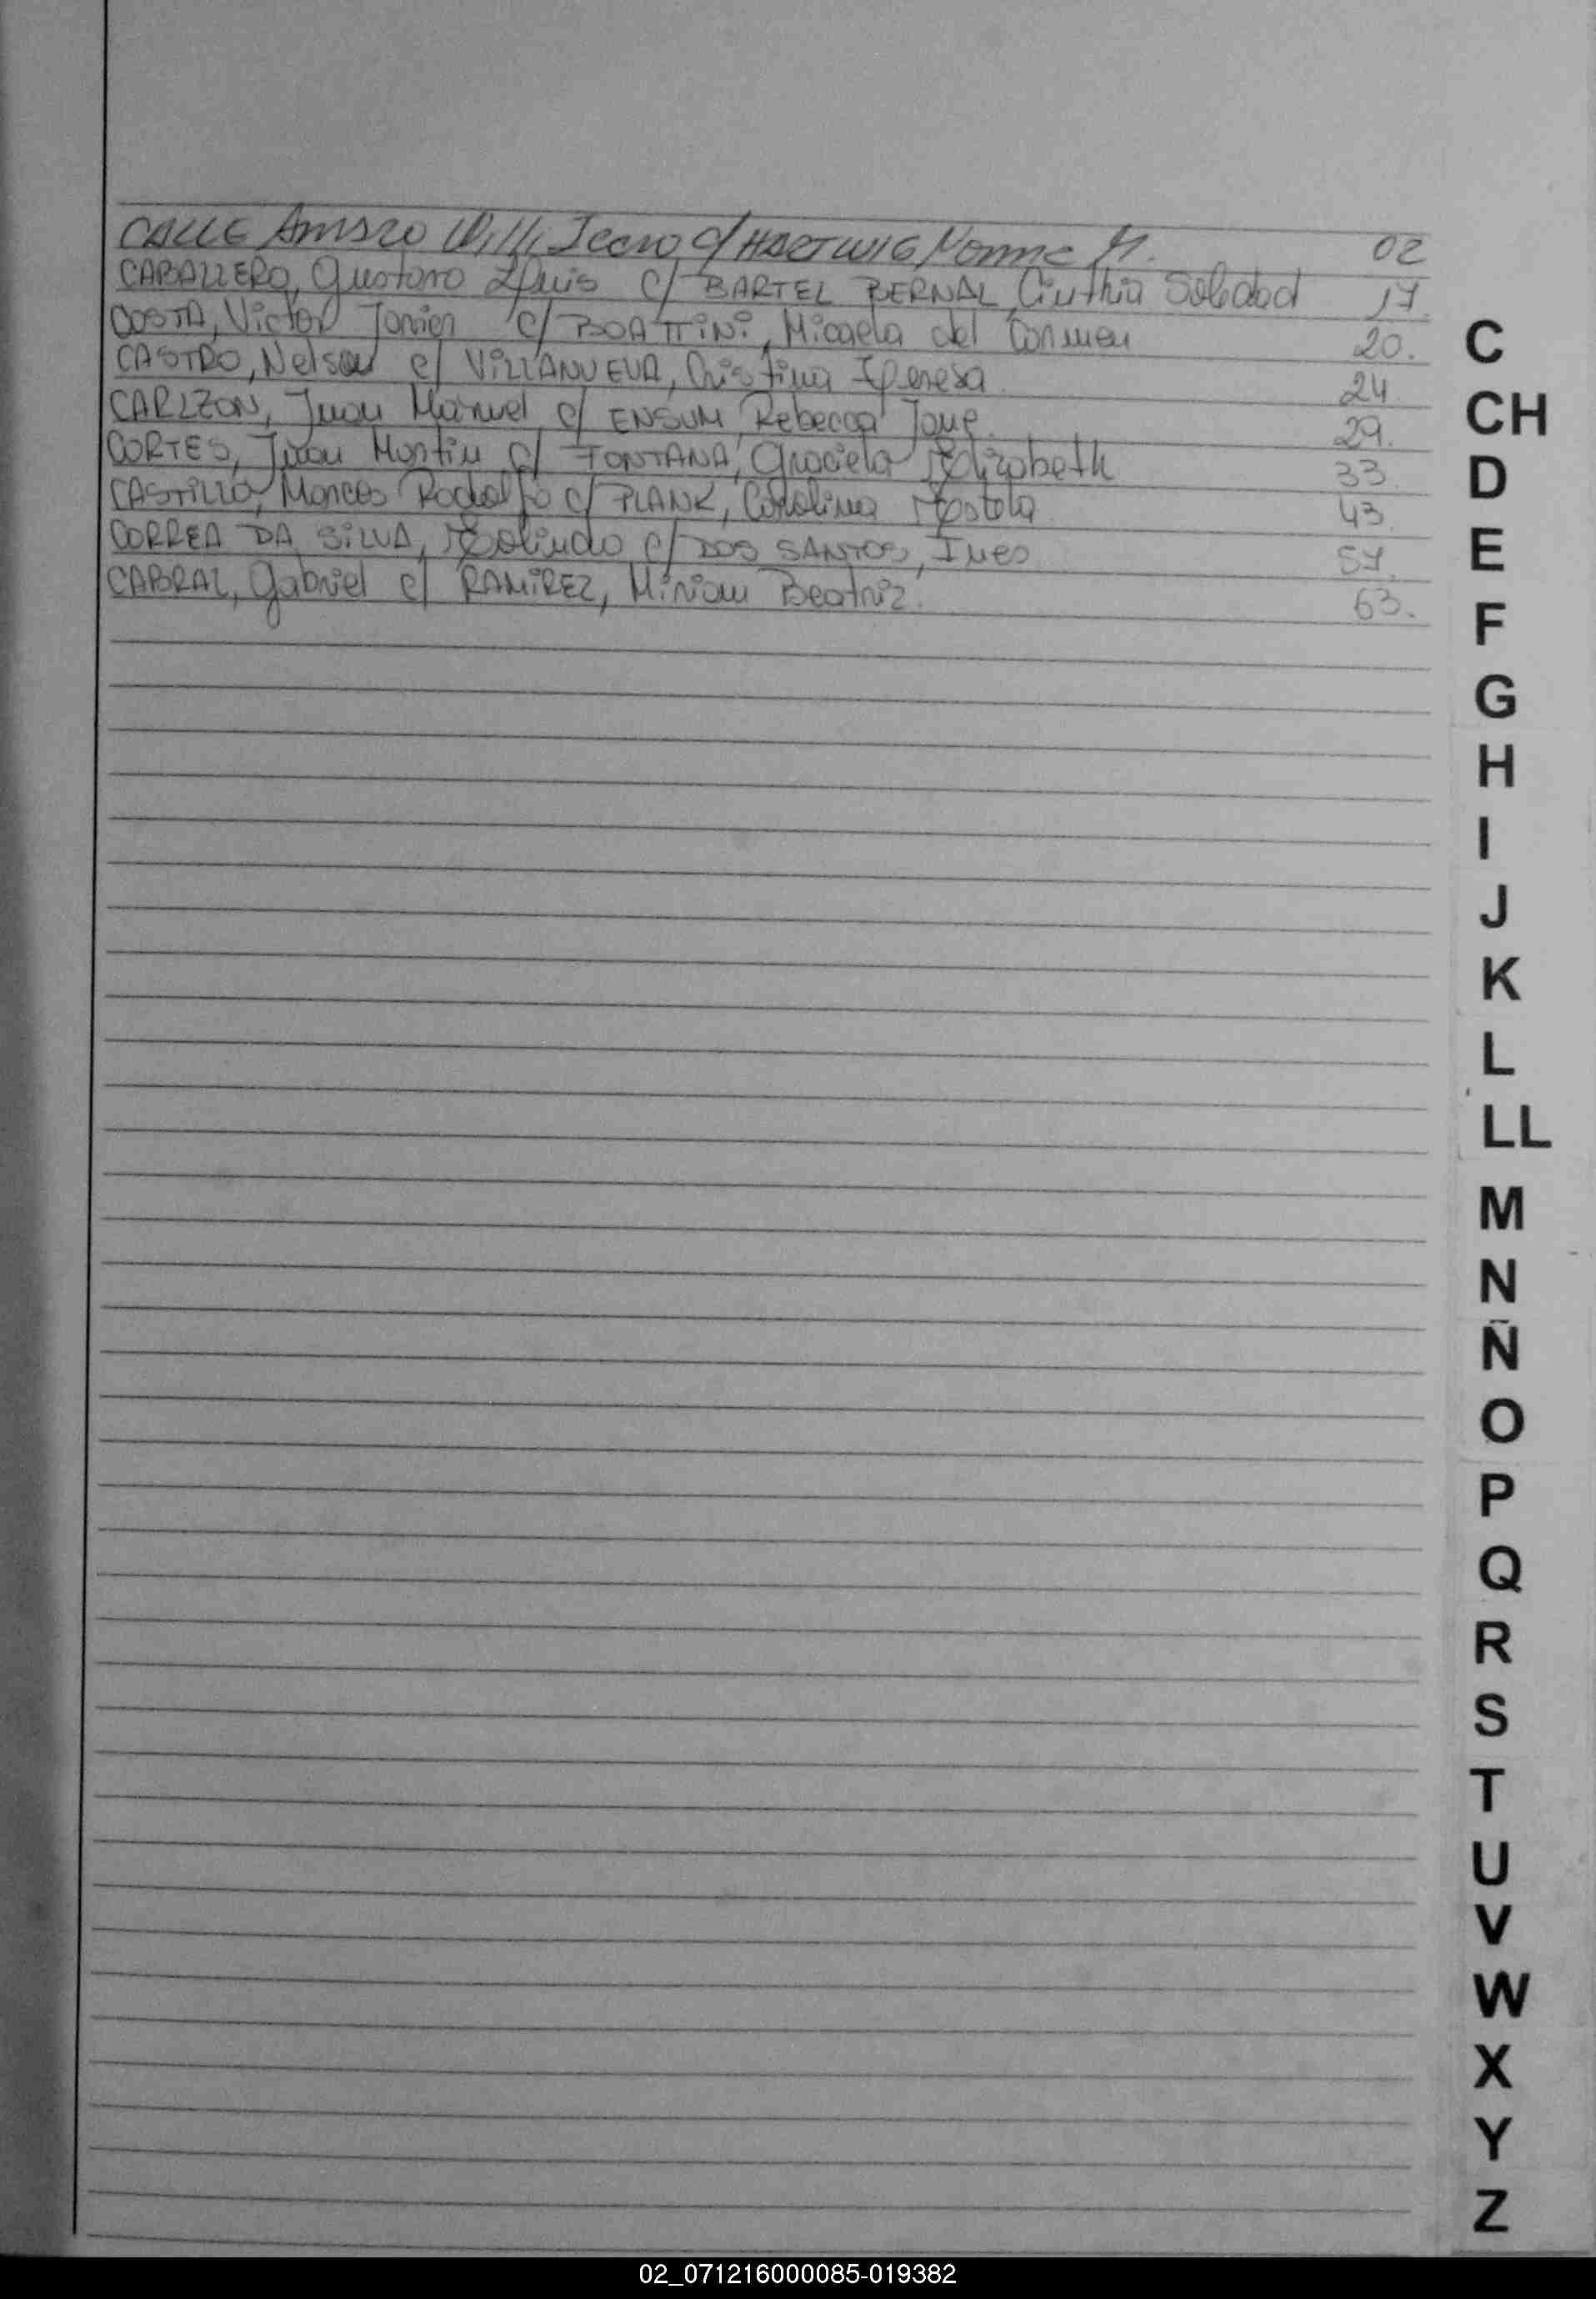 CALLE AMARO Willi Icaro c/ HARTWIG Norma M. 02
CABALLERO, Gustavo Luis c/ BARTEL BERNAL, Cinthia Soledad 17.
COSTA, Victor Javier c/ BOATTINI, Micaela del Carmen 20.
CASTRO, Nelson c/ VILLANUEVA, Cristina Teresa 24
CARLZON, Juan Manuel c/ ENSUM Rebecca Jane 29.
CORTES, Juan Martin c/ FONTANA, Graciela Elizabeth 33.
CASTILLO, Marcos Rodolfo c/ PLANK, Carolina 43.
CORREA DA SILVA, c/ DOS SANTOS, Ines 57.
CABRAL, Gabriel c/ RAMIREZ, Miriam Beatriz. 63.
C
CH
D
E
F
G
H
I
J
K
L
LL
M
N
Ñ
O
P
Q
R
S
T
U
V
W
X
Y
Z
02_071216000085-019382